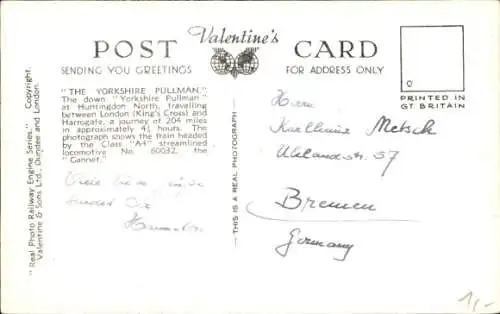 POST Valentine's CARD
SENDING YOU GREETINGS
FOR ADDRESS ONLY
PRINTED IN
GT. BRITAIN
"THE YORKSHIRE PULLMAN."
The down "Yorkshire Pullman"
at Huntingdon North, travelling
between London (King's Cross) and
Harrogate, a journey of 204 miles
in approximately 4½ hours. The
photograph shows the train headed
by the Class "A4" streamlined
locomotive No. 60032, the
"Gannet."
"Real Photo Railway Engine Series." Copyright.
Valentine & Sons Ltd., Dundee and London.
THIS IS A REAL PHOTOGRAPH
Herrn
Karlheinz Metsch
57
Bremen
Germany
1,-